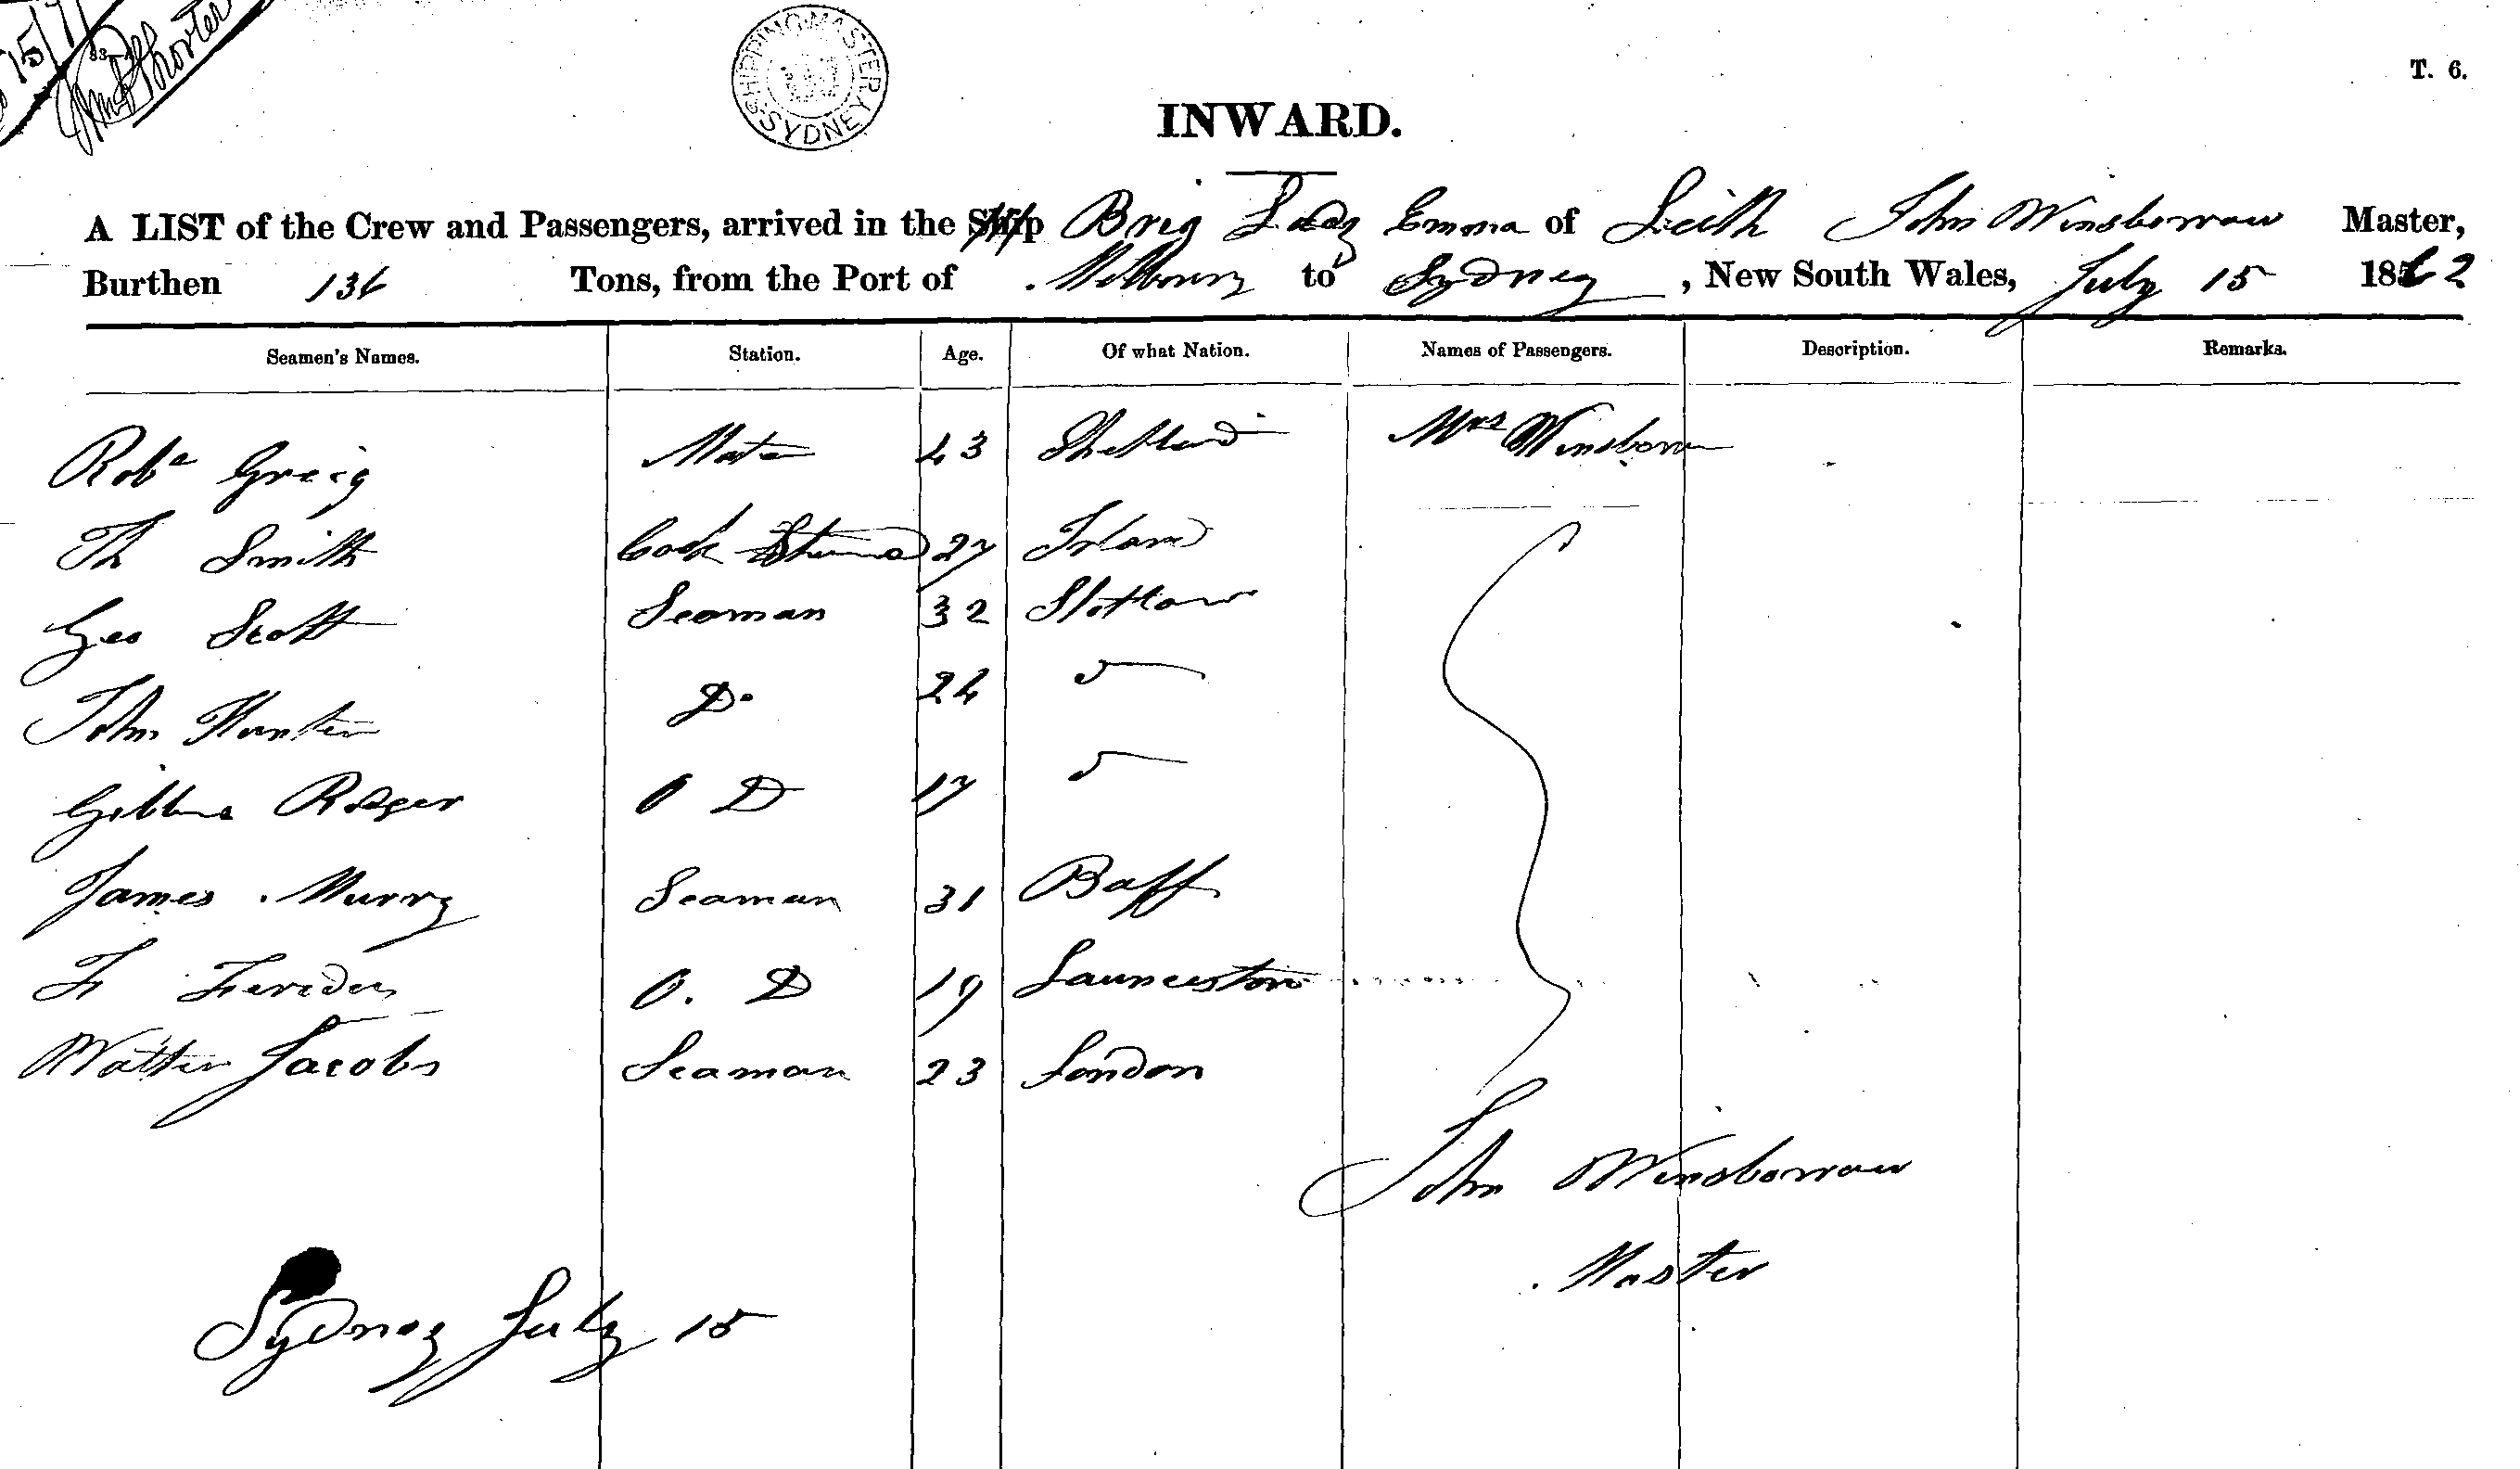 15/7
SHIPPING MASTER SYDNEY
T. 6.
INWARD.
A LIST of the Crew and Passengers, arrived in the Ship Brig Lady Emma of Leith John Winsborrow Master,
Burthen 136 Tons, from the Port of Melbourn to Sydney, New South Wales, July 15 1862
Seamen's Names. Station. Age. Of what Nation. Names of Passengers. Description. Remarks.
Robt Greig Mate 43 Shetland Mrs Winsborrow
Th Smith Cook Steward 27 Irland
Geo Scott Seaman 32 Scotland
John Hunter Do 24
Rodger O D 17
James Murry Seaman 31 Baff
F O. D 19 Launceston
Walter Jacobs Seaman 23 London
John Winsborrow
Master
Sydney July 15